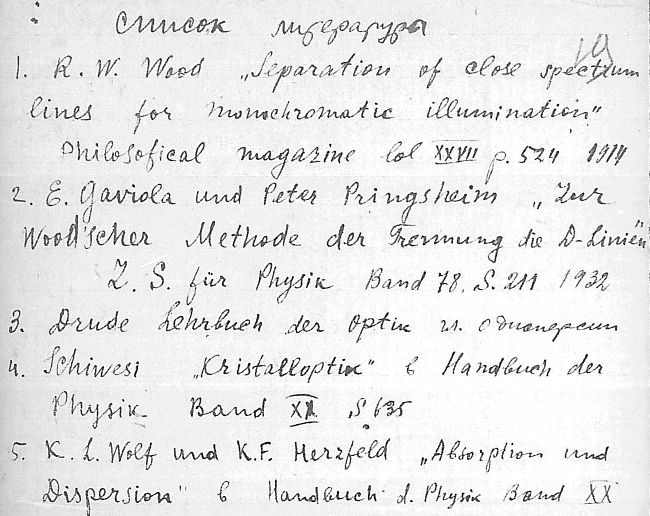 Список литературы
19
1. R. W. Wood „Separation of close spectrum
lines for monochromatic illumination"
Philosofical magazine lol XXVII p. 524 1914
2. E. Gaviola und Peter Pringsheim „Zur
Wood'scher Methode der Trennung die D-Linien"
Z. S. für Physik Band 78. S. 211 1932
3. Drude Lehrbuch der Optik
4. Schiwesi „Kristalloptik" в Handbuch der
Physik Band XX S 635
5. K. L. Wolf und K.F. Herzfeld „Absorption und
Dispersion" в Handbuch d. Physik Band XX